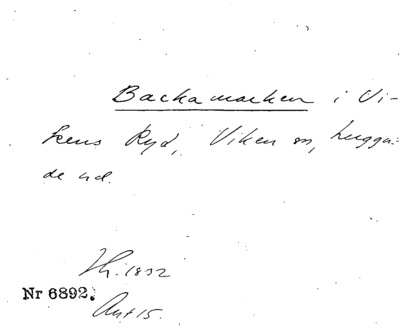 Backamarken i Vi-
kens Ryd, Viken sn, Luggu-
de hd.
Th. 1832
Nr 6892.
Ant 15.